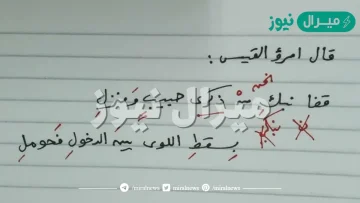 ميرال نيوز
قال امرؤ القيس :
قفا نبكِ من ذكرى حبيبٍ ومنزلِ
ميرال نيوز
بِسِقطِ اللوى بين الدخولِ فحوملِ
minalnews
minalnews
minalnews